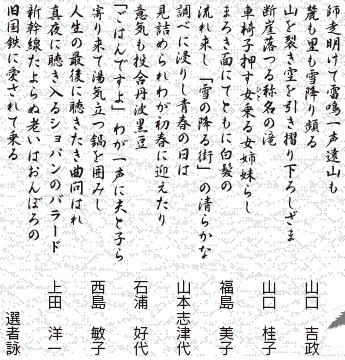 師走明けて雷鳴一声遠山も
麓も里も雪降り頻る
山口　吉政
山を裂き空を引き摺り下ろしざま
断崖落つる称名の滝
山口　桂子
車椅子押す女乗る女姉妹らし
まろき面にてともに白髪の
福島　美子
流れ来し「雪の降る街」の清らかな
調べに浸りし青春の日は
山本志津代
見詰められわが初春に迎えたり
意気も投合丹波黒豆
石浦　好代
「ごはんですよ」わが一声に夫と子ら
寄り来て湯気立つ鍋を囲みし
西島　敏子
人生の最後に聴きたき曲問はれ
真夜に聴き入るショパンのバラード
上田　洋一
新幹線たよらぬ老いはおんぼろの
旧国鉄に愛されて乗る
選者詠